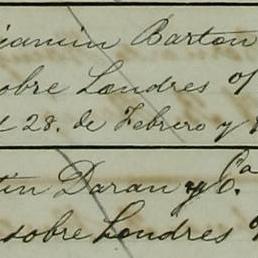 jamin Barton
sobre Londres of
28. de Febrero y
tin Daran y Ca.
sobre Londres